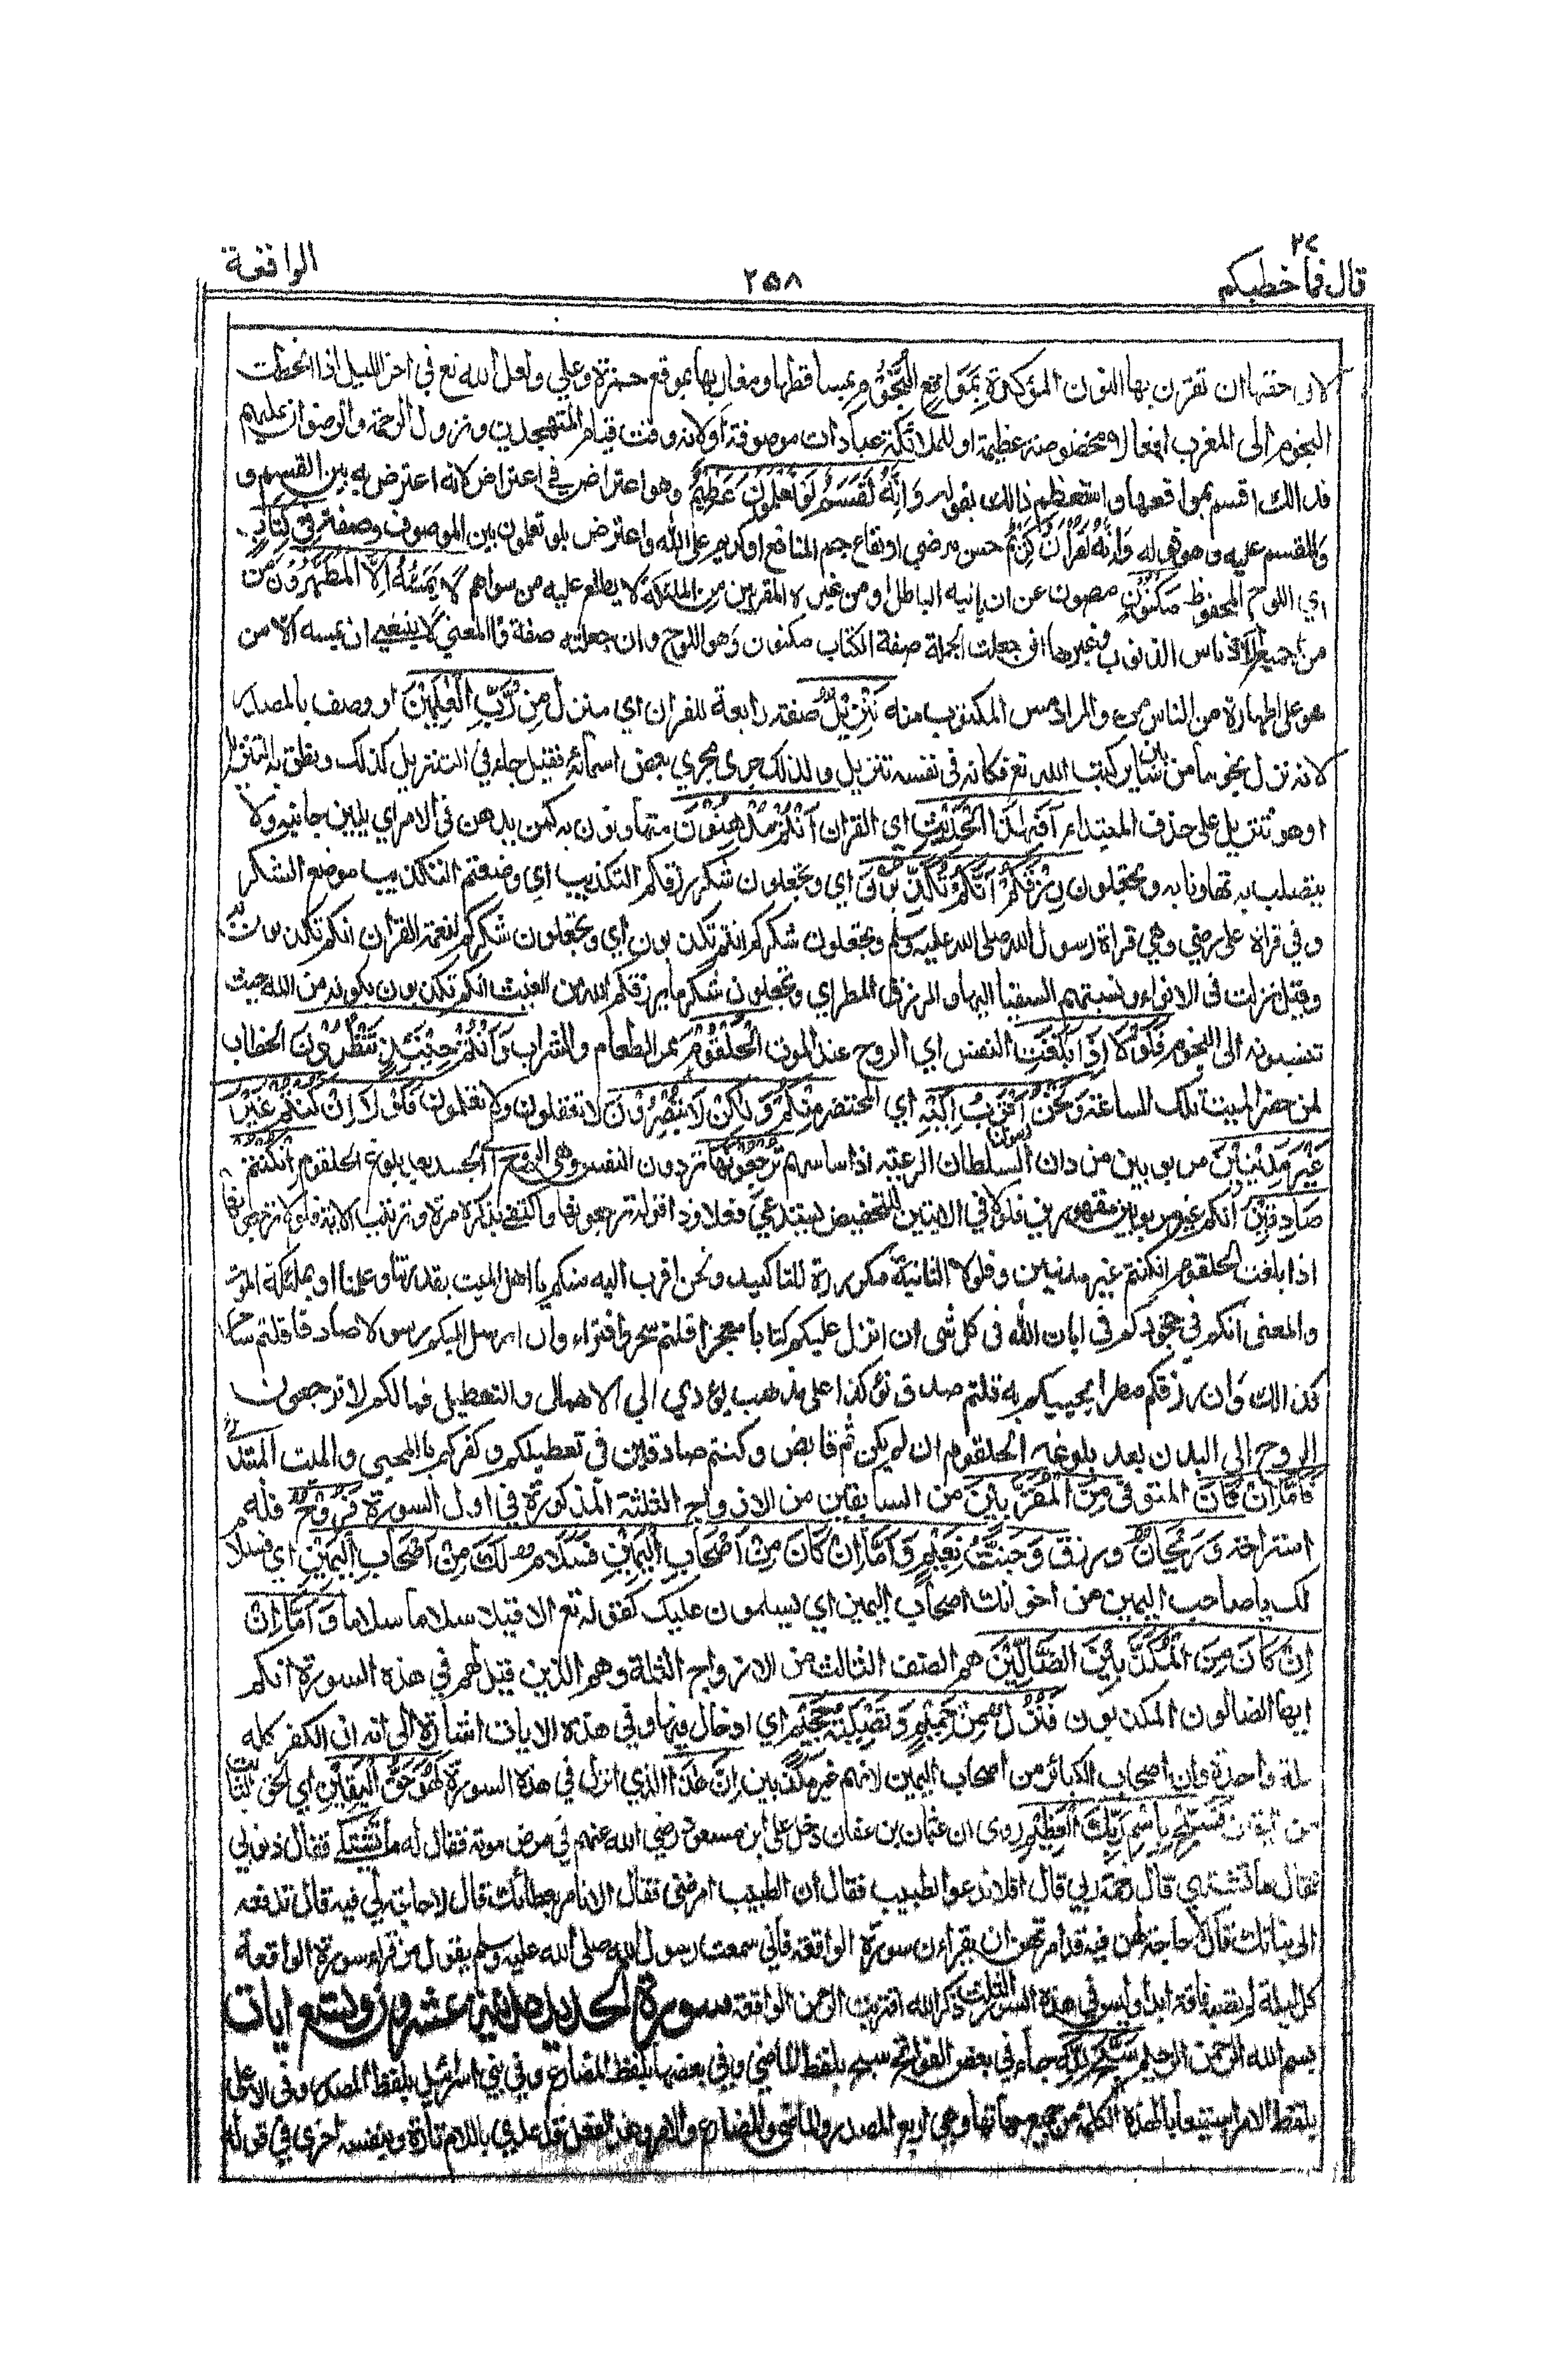 ٢٧
قال فما خطبكم
٢٥٨
الواقعة
لان حقها ان تقرن بها النون المؤكدة بِمَوَاقِعِ النُّجُوْمِ بمساقطها ومغاربها بموقع حمزة وعلي ولعل الله تع في اخر الليل اذا انحطت
النجوم الى المغرب افعالا مخصوصة عظيمة او للملائكة عبادات موصوفة او لانه وقت قيام المتهجدين ونزول الرحمة والرضوان عليهم
فذالك اقسم بمواقعها واستعظم ذالك بقوله وَاِنَّهٗ لَقَسَمٌ لَّوْ تَعْلَمُوْنَ عَظِيْمٌ وهو اعتراض في اعتراض لانه اعترض به بين القسم و
والمقسم عليه وهو قوله وَاِنَّهٗ لَقُرْاٰنٌ كَرِيْمٌ حسن مرضي او نفاع جم المنافع او كريم على الله واعترض بلو تعلمون بين الموصوف وصفته فِيْ كِتَابٍ
اي اللوح المحفوظ مَكْنُوْنٍ مصون عن ان ياتيه الباطل او من غير المقربين من الملئكة لا يطلع عليه من سواهم لَا يَمَسُّهٗ اِلَّا الْمُطَهَّرُوْنَ من
من جميع الادناس الذنوب وغيرها ان جعلت الجملة صفة الكتاب مكنون وهو اللوح وان جعلته صفة فالمعني لا ينبغي ان يمسه الا من
هو على طهارة من الناس والمراد مس المكتوب منه تَنْزِيْلٌ صفة رابعة للقران اي منزل مِنْ رَّبِّ الْعٰلَمِيْنَ او وصف بالمصدر
لانه نزل نجوما من بين ساير كتب الله تع فكانه في نفسه تنزيل ولذلك جرى مجري بعض اسمائه فقيل جاء في التنزيل كذلك ونطق به التنزيل
او هو تنزيل على حذف المبتداء اَفَبِهٰذَا الْحَدِيْثِ اي القران اَنْتُمْ مُّدْهِنُوْنَ متهاونون به كمن يدهن في الامر اي يلين جانبه ولا
يتصلب به تهاونا به وتجعلون رِزْقَكُمْ اَنَّكُمْ تُكَذِّبُوْنَ اي وتجعلون شكر رزقكم التكذيب اي وضعتم التكذيب موضع الشكر
وفي قراة علي رضي وهي قراة رسول الله صلى الله عليه وسلم وتجعلون شكركم انكم تكذبون اي وتجعلون شكركم لنعمة القران انكم تكذبون
وقيل نزلت في الانواء ونسبتهم السقيا اليها والرزق المطر اي وتجعلون شكر ما يرزقكم الله من الغيث انكم تكذبون بكونه من الله حيث
تنسبونه الى النجوم فَلَوْلَا اِذَا بَلَغَتِ النفس اي الروح عند الموت الْحُلْقُوْمَ ممر الطعام والشراب وَاَنْتُمْ حِيْنَئِذٍ تَنْظُرُوْنَ الخطاب
لمن حضر الميت تلك الساعة وَنَحْنُ اَقْرَبُ اِلَيْهِ اي المحتضر مِنْكُمْ وَلٰكِنْ لَّا تُبْصِرُوْنَ لا تعقلون ولا تعلمون فَلَوْلَا اِنْ كُنْتُمْ غَيْرَ
غَيْرَ مَدِيْنِيْنَ مربوبين من دان السلطان الرعية اذا ساسهم تَرْجِعُوْنَهَا تردون النفس وهي الروح الى الجسد بعد بلوغ الحلقوم اِنْ كُنْتُمْ
صَادِقِيْنَ انكم غير مربوبين مقهورين فلولا في الايتين للتحضيض يستدعي فعلا وذا قوله ترجعونها واكتفي بذكره مرة وترتيب الاية فلولا ترجعونها
اذا بلغت الحلقوم ان كنتم غير مدينين وفلولا الثانية مكررة للتاكيد ونحن اقرب اليه منكم يا اهل الميت بقدرتنا وعلمنا او بملئكة الموت
والمعنى انكم في جحودكم في ايات الله في كل شي ان انزل عليكم كتابا معجزا قلتم سحر وافتراء وان ارسل اليكم رسولا صادقا قلتم ساحر
كذالك وان رزقكم مطرا يحييكم به قلتم صدق نوء كذا على مذهب يودي الى الاهمال والتعطيل فما لكم لا ترجعون
الروح الى البدن بعد بلوغه الحلقوم ان لم يكن ثم قابض وكنتم صادقين في تعطيلكم وكفركم بالمحيي والميت المبتدي
فَاَمَّا اِنْ كَانَ المتوفى مِنَ الْمُقَرَّبِيْنَ من السابقين من الازواج الثلثة المذكورة في اول السورة فَرَوْحٌ فله
استراحة وَرَيْحَانٌ ورزق وَجَنَّتُ نَعِيْمٍ وَاَمَّا اِنْ كَانَ مِنْ اَصْحَابِ الْيَمِيْنِ فَسَلَامٌ لَكَ مِنْ اَصْحَابِ الْيَمِيْنِ اي فسلام
لك يا صاحب اليمين من اخوانك اصحاب اليمين اي يسلمون عليك كقوله تع الا قيلا سلاما سلاما وَاَمَّا اِنْ
اِنْ كَانَ مِنَ الْمُكَذِّبِيْنَ الضَّالِّيْنَ هم الصنف الثالث من الازواج الثلثة وهم الذين قيل لهم في هذه السورة انكم
ايها الضالون المكذبون فَنُزُلٌ مِّنْ حَمِيْمٍ وَتَصْلِيَةُ جَحِيْمٍ اي ادخال فيها وفي هذه الايات اشارة الى انه ان الكفر كله
ملة واحدة وان اصحاب الكبائر من اصحاب اليمين لانهم غير مكذبين اِنَّ هٰذَا الذي انزل في هذه السورة لَهُوَ حَقُّ الْيَقِيْنِ اي الحق الثابت
من اليقين فَسَبِّحْ بِاسْمِ رَبِّكَ الْعَظِيْمِ روى ان عثمان بن عفان دخل على ابن مسعود رضي الله عنهم في مرض موته فقال له ما تشتكي فقال ذنوبي
فقال ما تشتهي قال رحمة ربي قال افلا ندعو الطبيب فقال ان الطبيب امرضني فقال الا نامر بعطائك قال لا حاجة لي فيه قال تدفعه
الى بناتك قال لا حاجة لهن فيه قد امرتهن ان يقراءن سورة الواقعة فاني سمعت رسول الله صلى الله عليه وسلم يقول من قراء سورة الواقعة
كل ليلة لم تصبه فاقة ابدا وليس في هذه السور الثلث ذكر الله اقتربت الرحمن الواقعة سورة الحديد مدنية عشرون وتسع ايات
بسم الله الرحمن الرحيم سَبَّحَ لِلّٰهِ جاء في بعض الفواتح سبح بلفظ الماضي وفي بعضها بلفظ المضارع وفي بني اسرائيل بلفظ المصدر وفي الاعلى
بلفظ الامر استيعابا لهذه الكلمة من جميع جهاتها وهي اربع المصدر والماضي والمضارع والامر وهذا الفعل قد عدي باللام تارة وبنفسه اخرى في قوله